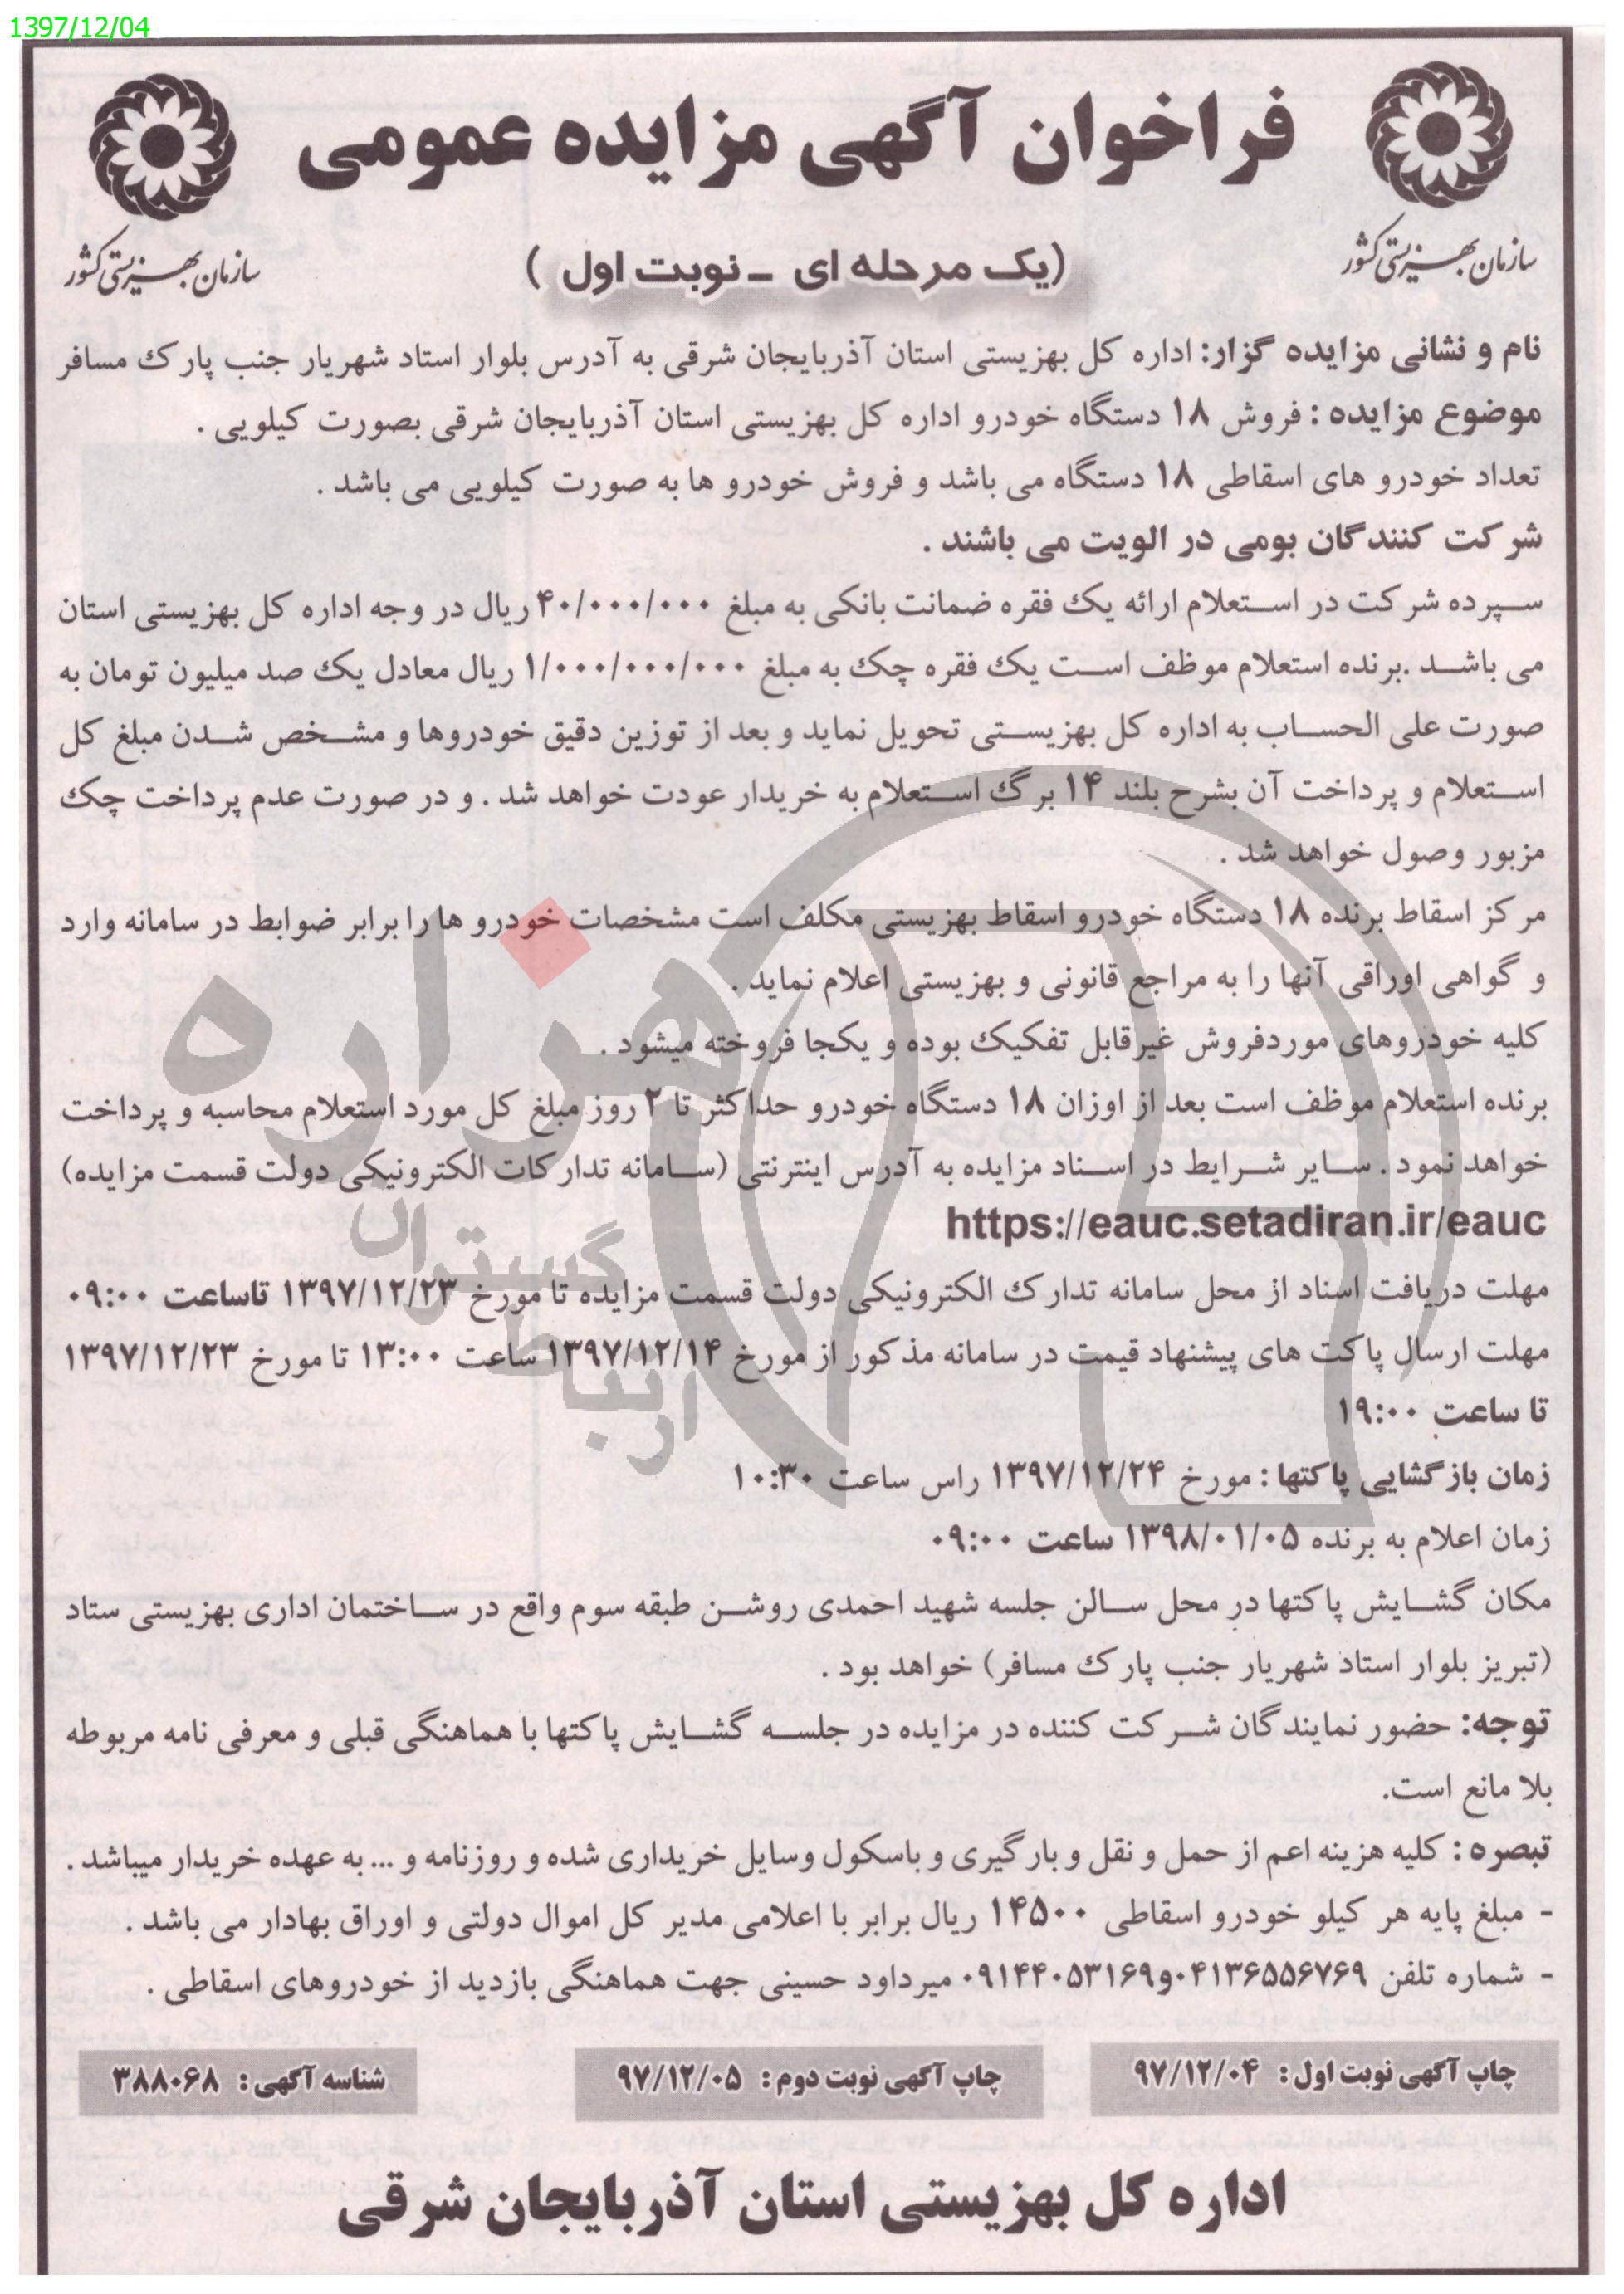 1397/12/04
فراخوان آگهی مزایده عمومی
سازمان بهزیستی کشور
سازمان بهزیستی کشور
(یک مرحله ای - نوبت اول )
نام و نشانی مزایده گزار: اداره کل بهزیستی استان آذربایجان شرقی به آدرس بلوار استاد شهریار جنب پارک مسافر
موضوع مزایده : فروش ۱۸ دستگاه خودرو اداره کل بهزیستی استان آذربایجان شرقی بصورت کیلویی .
تعداد خودرو های اسقاطی ۱۸ دستگاه می باشد و فروش خودرو ها به صورت کیلویی می باشد .
شرکت کنندگان بومی در الویت می باشند .
سپرده شرکت در استعلام ارائه یک فقره ضمانت بانکی به مبلغ ۴۰/۰۰۰/۰۰۰ ریال در وجه اداره کل بهزیستی استان
می باشد .برنده استعلام موظف است یک فقره چک به مبلغ ۱/۰۰۰/۰۰۰/۰۰۰ ریال معادل یک صد میلیون تومان به
صورت علی الحساب به اداره کل بهزیستی تحویل نماید و بعد از توزین دقیق خودروها و مشخص شدن مبلغ کل
استعلام و پرداخت آن بشرح بلند ۱۴ برگ استعلام به خریدار عودت خواهد شد . و در صورت عدم پرداخت چک
مزبور وصول خواهد شد .
مرکز اسقاط برنده ۱۸ دستگاه خودرو اسقاط بهزیستی مکلف است مشخصات خودرو ها را برابر ضوابط در سامانه وارد
و گواهی اوراقی آنها را به مراجع قانونی و بهزیستی اعلام نماید .
کلیه خودروهای موردفروش غیرقابل تفکیک بوده و یکجا فروخته میشود .
برنده استعلام موظف است بعد از اوزان ۱۸ دستگاه خودرو حداکثر تا ۲ روز مبلغ کل مورد استعلام محاسبه و پرداخت
خواهد نمود . سایر شرایط در اسناد مزایده به آدرس اینترنتی (سامانه تدارکات الکترونیکی دولت قسمت مزایده)
https://eauc.setadiran.ir/eauc
مهلت دریافت اسناد از محل سامانه تدارک الکترونیکی دولت قسمت مزایده تا مورخ ۱۳۹۷/۱۲/۲۳ تاساعت ۰۹:۰۰
مهلت ارسال پاکت های پیشنهاد قیمت در سامانه مذکور از مورخ ۱۳۹۷/۱۲/۱۴ ساعت ۱۳:۰۰ تا مورخ ۱۳۹۷/۱۲/۲۳
تا ساعت ۱۹:۰۰
زمان بازگشایی پاکتها : مورخ ۱۳۹۷/۱۲/۲۴ راس ساعت ۱۰:۳۰
زمان اعلام به برنده ۱۳۹۸/۰۱/۰۵ ساعت ۰۹:۰۰
مکان گشایش پاکتها در محل سالن جلسه شهید احمدی روشن طبقه سوم واقع در ساختمان اداری بهزیستی ستاد
(تبریز بلوار استاد شهریار جنب پارک مسافر) خواهد بود .
توجه: حضور نمایندگان شرکت کننده در مزایده در جلسه گشایش پاکتها با هماهنگی قبلی و معرفی نامه مربوطه
بلا مانع است.
تبصره : کلیه هزینه اعم از حمل و نقل و بارگیری و باسکول وسایل خریداری شده و روزنامه و ... به عهده خریدار میباشد .
- مبلغ پایه هر کیلو خودرو اسقاطی ۱۴۵۰۰ ریال برابر با اعلامی مدیر کل اموال دولتی و اوراق بهادار می باشد .
- شماره تلفن ۰۴۱۳۶۵۵۶۷۶۹و۰۹۱۴۴۰۵۳۱۶۹ میرداود حسینی جهت هماهنگی بازدید از خودروهای اسقاطی .
چاپ آگهی نوبت اول : ۹۷/۱۲/۰۴
چاپ آگهی نوبت دوم : ۹۷/۱۲/۰۵
شناسه آگهی : ۳۸۸۰۶۸
اداره کل بهزیستی استان آذربایجان شرقی
هزاره
گستران
ارتباط